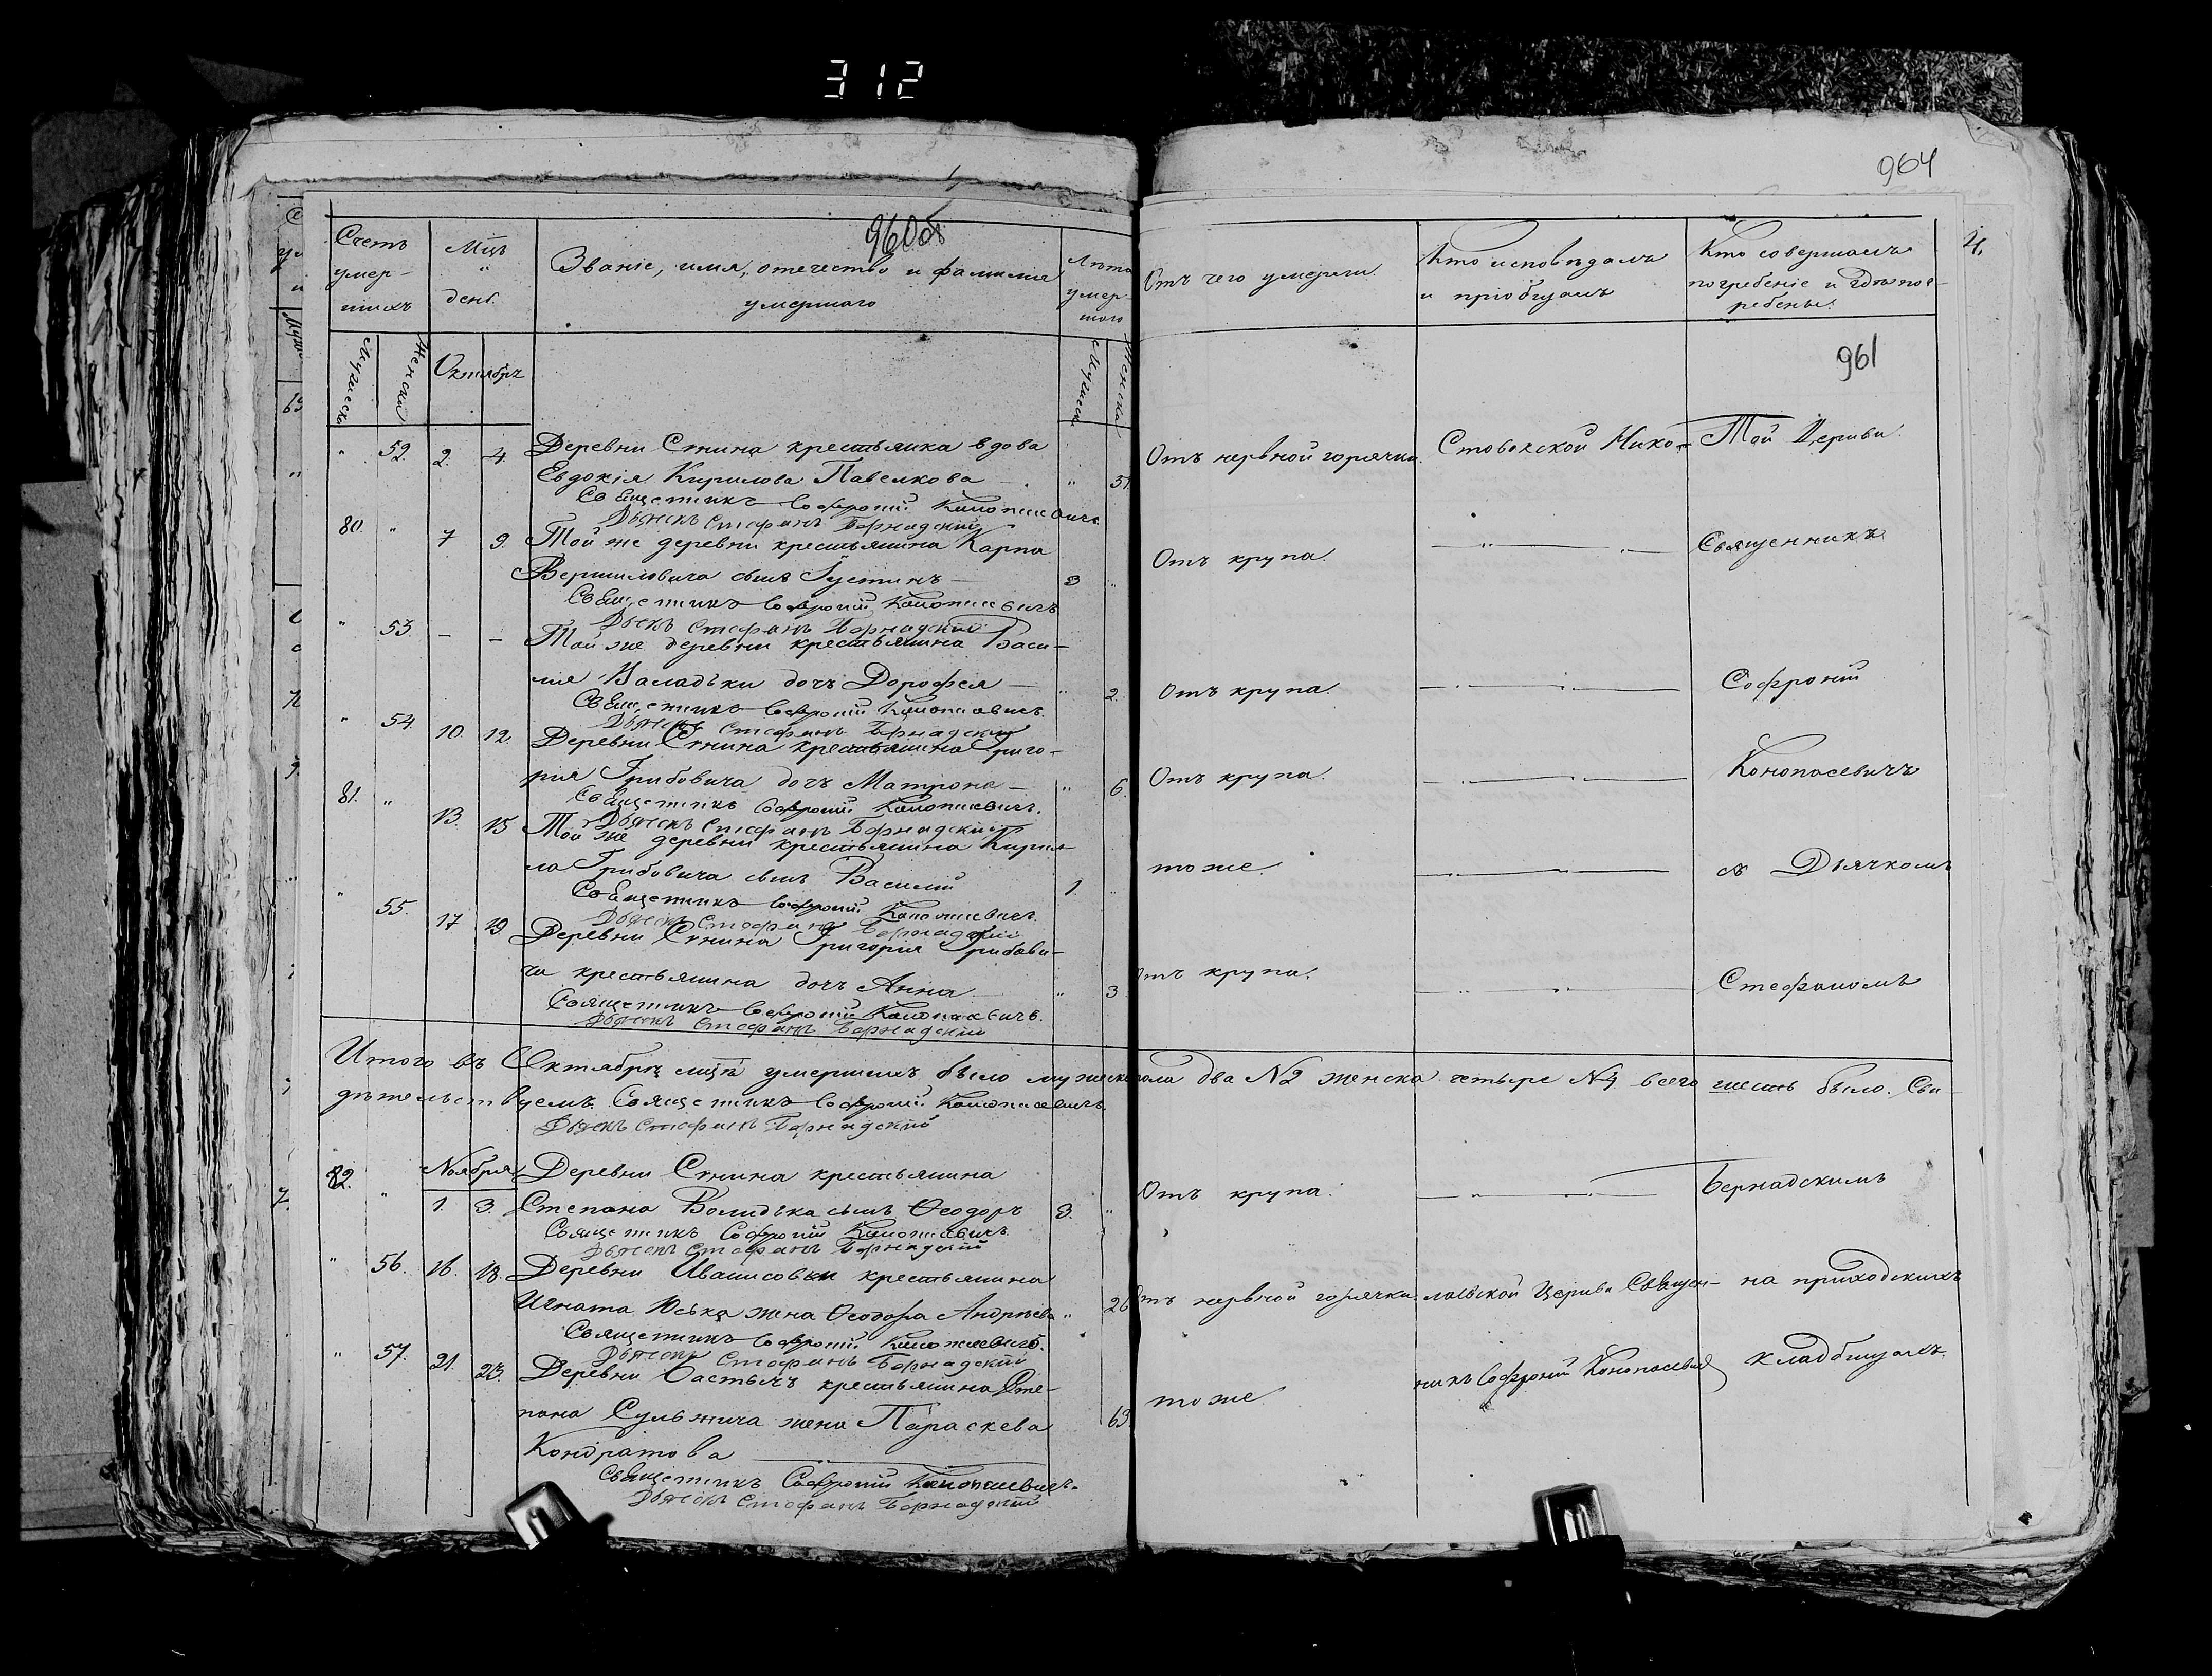 312
964
960об
Счетъ умер- шихъ
Мцъ " день.
Званіе, имя, отечество и фамилія
умершаго
Лѣта умер- шаго
Отъ чего умерли.
Кто исповѣдалъ
и пріобщалъ
Кто совершалъ
погребеніе и гдѣ пог-
ребены.
4.
Мужеска Женска Октябрь Мужеск Женска
961
" 52. 2. 4. Деревни Стнина крестьянка вдова
Евдокія Кирилова Павелкова — " 51. Отъ нервной горячки. Стовокской Нико- Той Церкви
Священникъ Софроній Конопасевичъ
Дьячекъ Стефанъ Бернадскій
80. " 7 9. Той же деревни крестьянина Карпа
Вершиловича сынъ Іустинъ — 3 " Отъ крупа. — " — " — Священникъ
Священникъ Софроній Конопасевичъ
Дьячекъ Стефанъ Бернадскій
" 53. – – Той же деревни крестьянина Васи-
лія Валадьки дочь Дорофея — " 2. Отъ крупа. — " — " — Софроній
Священникъ Софроній Конопасевичъ.
Дьячекъ Стефанъ Бернадскій
" 54. 10. 12. Деревни Стнина крестьянина Григо-
рія Грибовича дочь Матрона — " 6. Отъ крупа. — " — " — Конопасевичъ
Священникъ Софроній Конопасевичъ.
Дьячекъ Стефанъ Бернадскій
81. " 13. 15 Той же деревни крестьянина Кирил-
ла Грибовича сынъ Василій 1. " тоже. — " — " — съ Дьячкомъ
Священникъ Софроній Конопасевичъ.
Дьячекъ Стефанъ Бернадскій
" 55. 17 19. Деревни Стнина Григорія Грибови-
ча крестьянина дочь Анна — " 3 Отъ крупа. — " — " — Стефаномъ
Священникъ Софроній Конопасевичъ.
Дьячекъ Стефанъ Бернадскій
Итого въ Октябрѣ мцѣ умершихъ было мужеска пола два №2 женска четыре №4 всего шесть было. Сви-
дѣтельствуемъ. Священникъ Софроній Конопасевичъ.
Дьячекъ Стефанъ Бернадскій
82. " Ноября Деревни Стнина крестьянина
1. 3. Степана Волидька сынъ Ѳеодоръ 3. " Отъ крупа. — " — " — Бернадскимъ
Священникъ Софроній Конопасевичъ.
Дьячекъ Стефанъ Бернадскій
" 56. 16. 18. Деревни Иванисовки крестьянина
Игната Юська жена Ѳеодора Андреева " 26 Отъ нервной горячки. лаевской Церкви Священ- на приходскихъ
Священникъ Софроній Конопасевичъ.
Дьячекъ Стефанъ Бернадскій
" 57. 21. 23. Деревни Состычъ крестьянина Сте-
пана Сульжича жена Параскева 63. тоже. никъ Софроній Конопасевичъ кладбищахъ.
Кондратова —
Священникъ Софроній Конопасевичъ.
Дьячекъ Стефанъ Бернадскій